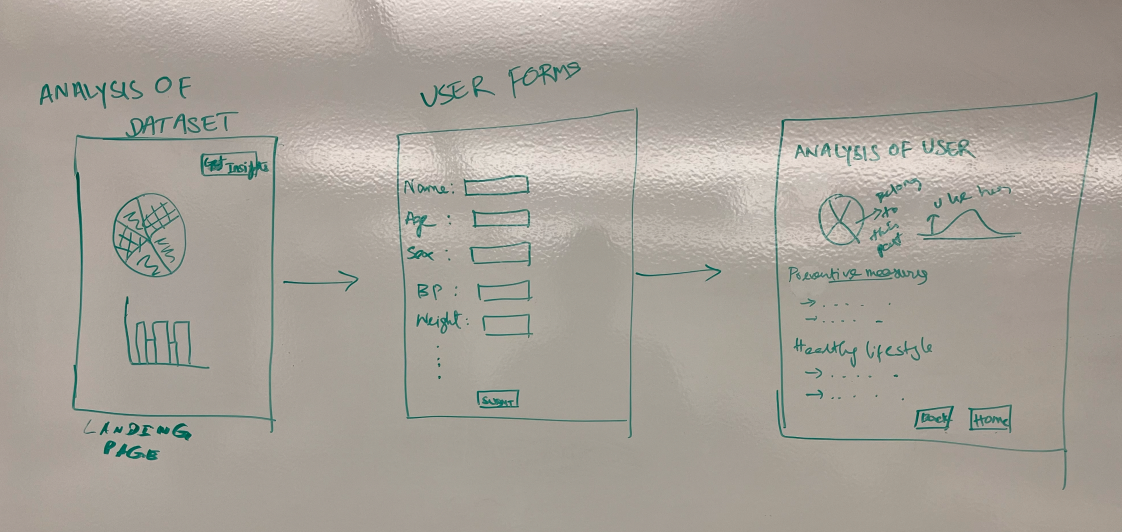 ANALYSIS OF
DATASET
Get Insights
LANDING
PAGE
USER FORMS
Name:
Age :
Sex :
BP :
Weight:
SUBMIT
ANALYSIS OF USER
belong
to
this
part
U lie here
Preventive measures
Healthy lifestyle
Back
Home